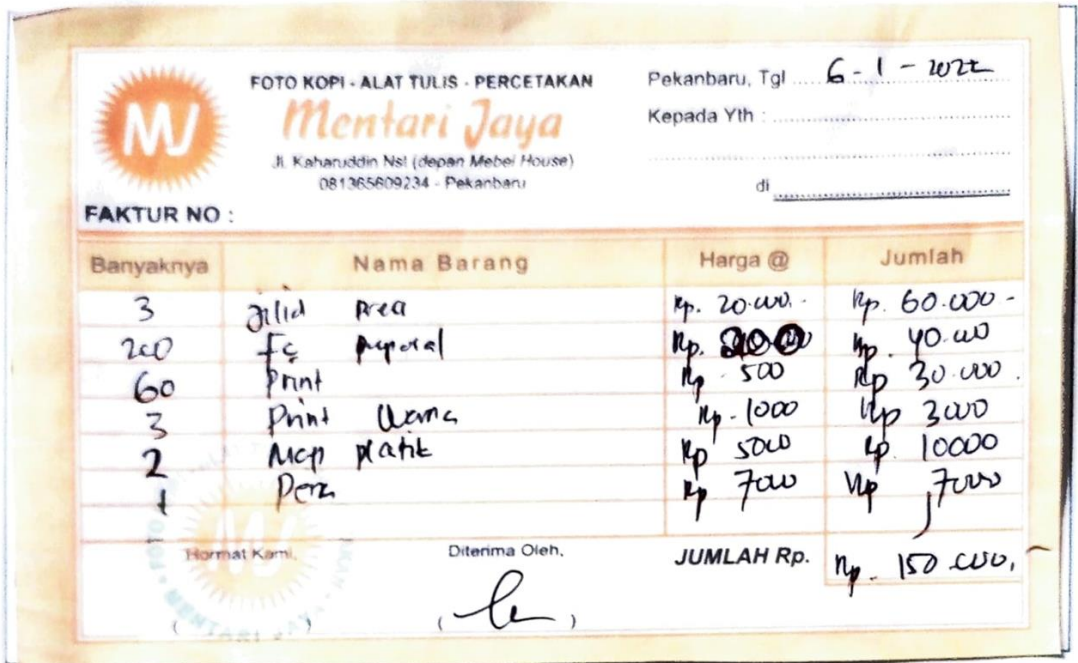 MJ
FOTO KOPI - ALAT TULIS - PERCETAKAN
Mentari Jaya
Jl. Kaharuddin Nst (depan Mebel House)
081365609234 - Pekanbaru
Pekanbaru, Tgl 6 - 1 - 2022
Kepada Yth :
di
FAKTUR NO :
Banyaknya Nama Barang Harga @ Jumlah
3 Jilid Rp. 20.000.- Rp. 60.000-
200 Fc proposal Rp. 200 Rp. 40.000
60 Print Rp - 500 Rp 30.000.
3 Print Warna Rp - 1000 Rp 3000
2 Map platik Rp 5000 Rp. 10000
1 Rp 7000 Rp 7000
Hormat Kami, Diterima Oleh, JUMLAH Rp. Rp. 150.000,-
( ) ( )
FOTO
MENTARI JAYA